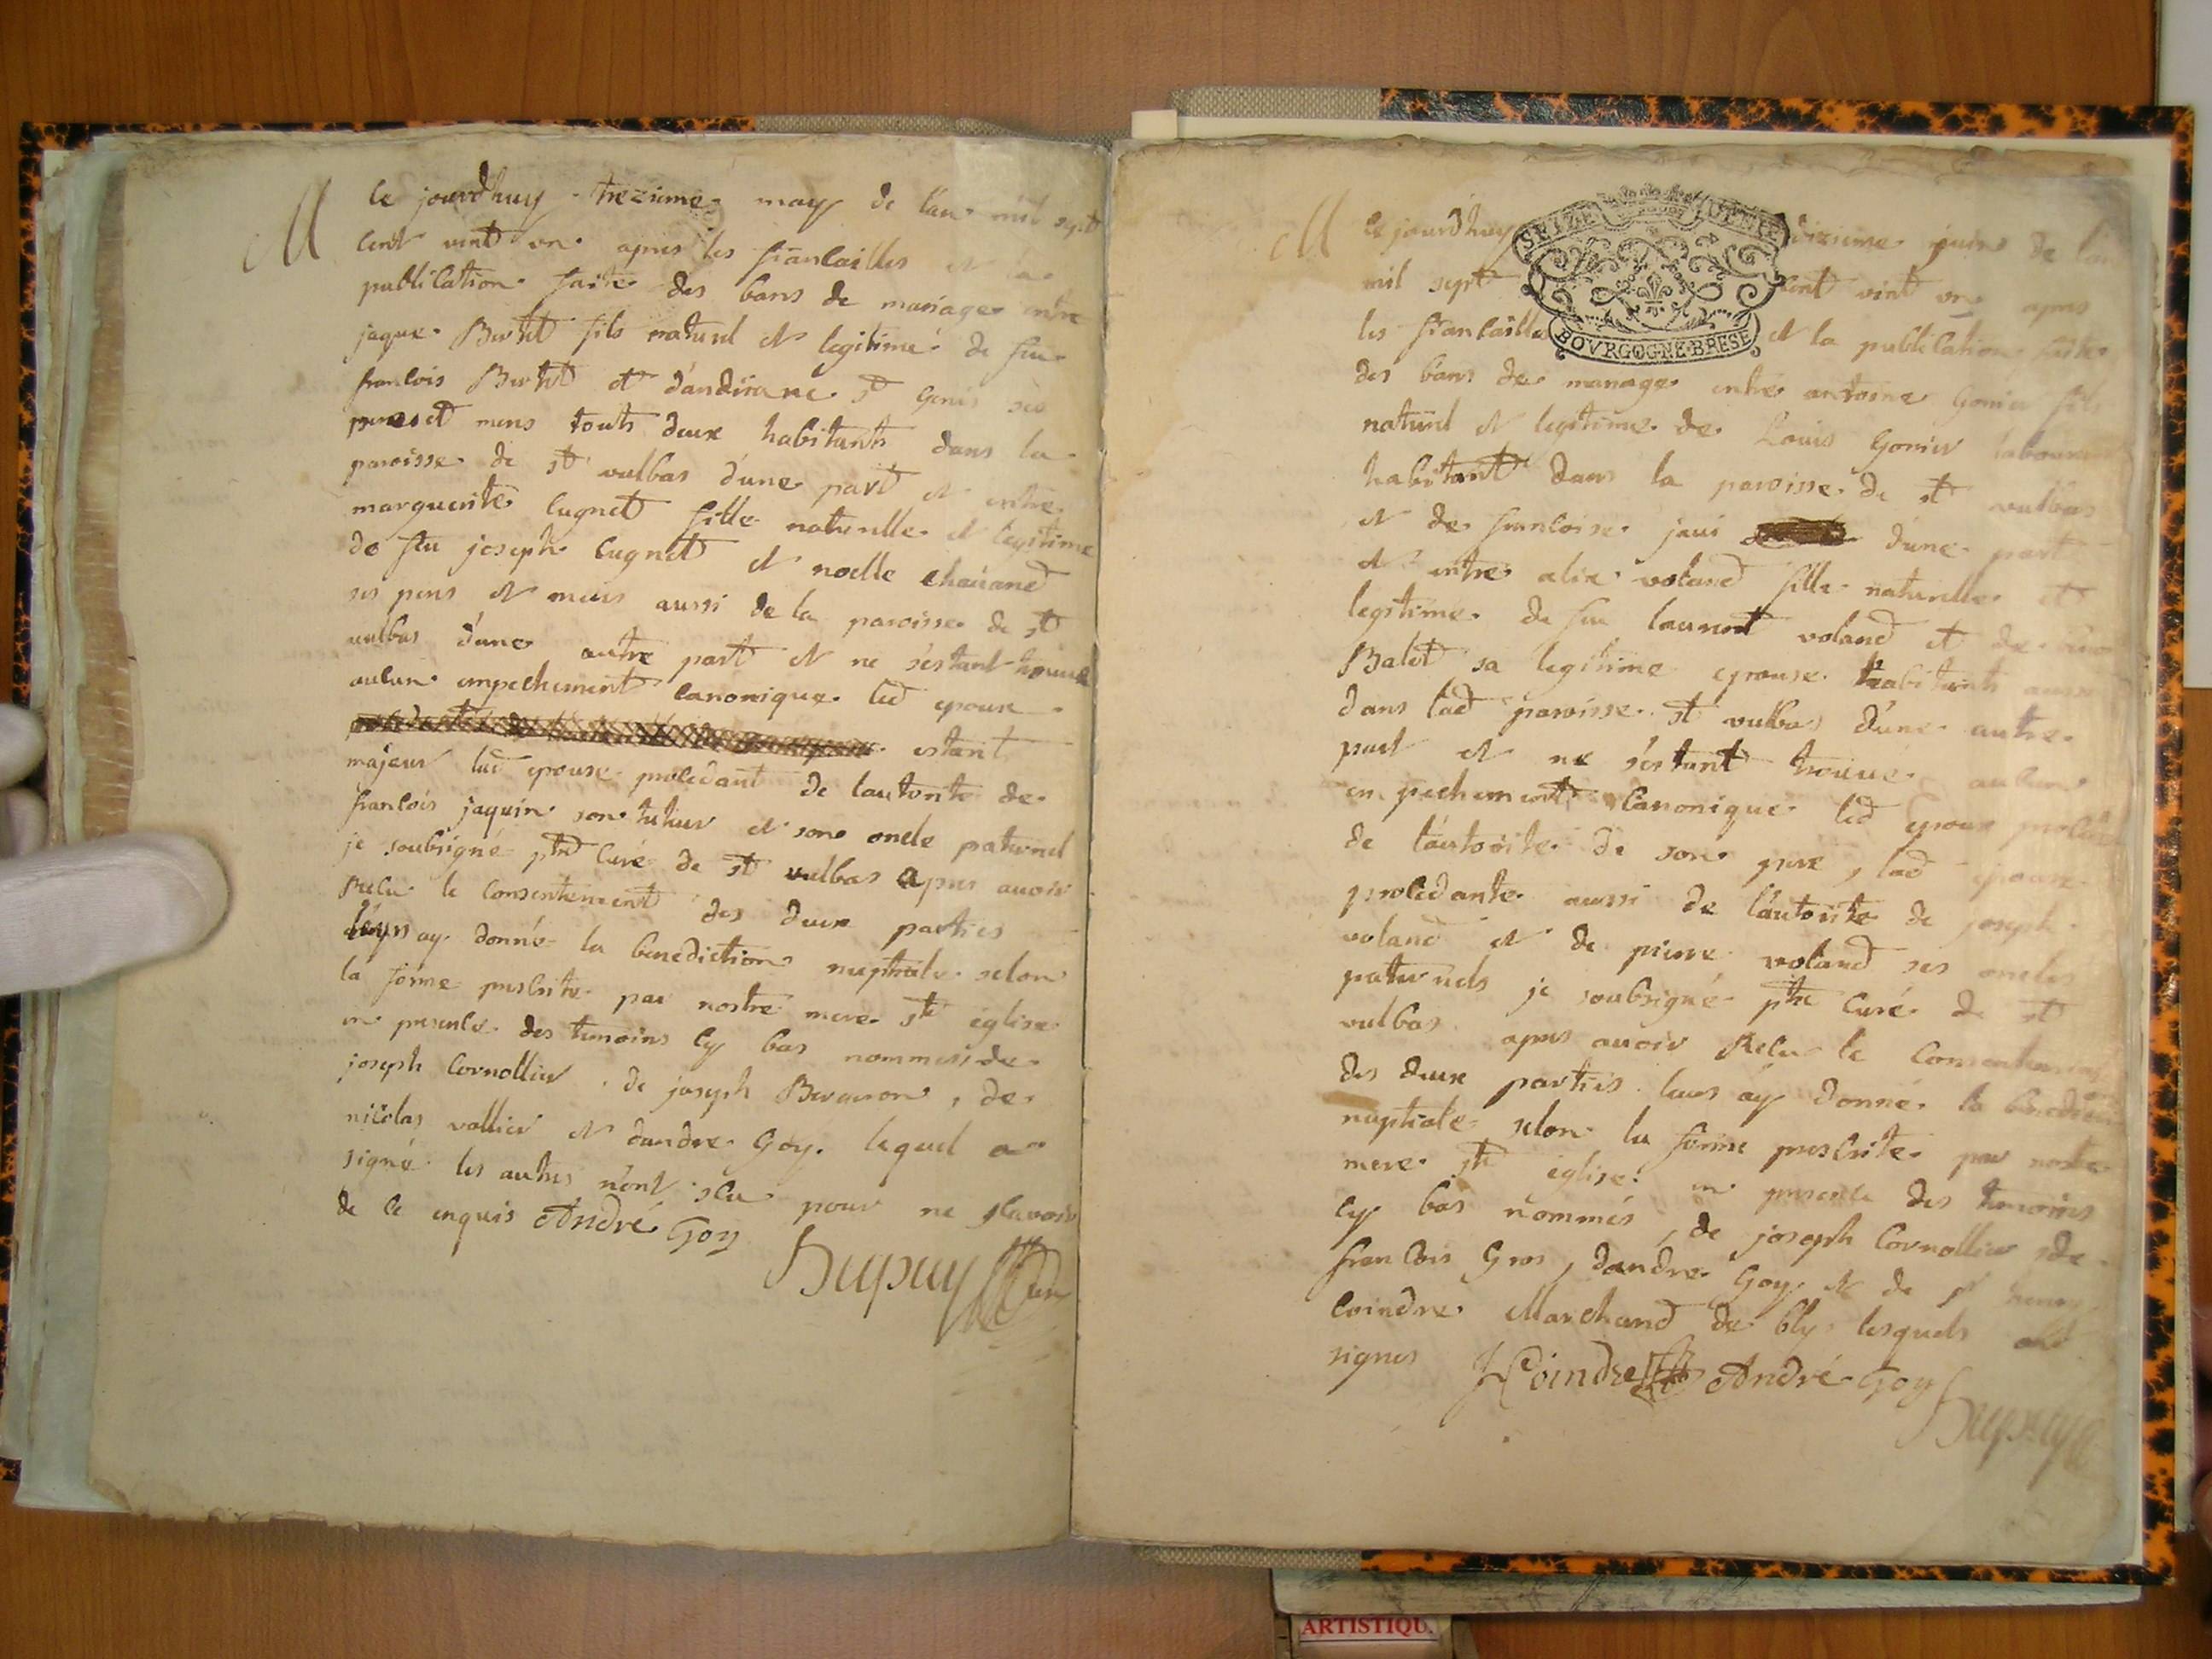 M
Ce jourdhuy trezieme may de l'an mil sept
cent vint un apres les fiancailles et la
publication faite des bans de mariage entre
jaque Bertet fils naturel et legitime de feu
francois Bertet et d'andirane st Genis ses
peres et meres touts deux habitants dans la
paroisse de st vulbas d'une part et entre
marguerite Cugnet fille naturelle et legitime
de feu joseph Cugnet et noelle chavand
ses peres et meres aussi de la paroisse de st
vulbas d'une autre part et ne s'estant trouvé
aucun empechement canonique led epoux
estant
majeur lad epouse procedant de lautorite de
francois jaquin son tuteur et son oncle paternel
je soubsigné ptre Curé de st vulbas apres avoir
Recu le Consentement des deux parties
leurs ay donné la benediction nuptiale selon
la forme prescrite par nostre mere ste eglise
en presence des temoins Cy bas nommes de
joseph Cornollier, de joseph Beraron, de
nicolas vallier et dandre Goy lequel a
signé les autres n'ont sceu pour ne scavoir
de ce enquis André Goy
Dupuy Curé
M
Ce jourdhuy dixieme juin de l'an
mil sept cent vint un apres
les fiancailles et la publication faite
des bans de mariage entre antoine Gonier fils
naturel et legitime de Louis Gonier laboureur
habitant dans la paroisse de st vulbas
et de francoise jaui d'une part
et entre alix voland fille naturelle et
legitime de feu laurent voland et de
Balet sa legitime epouse habitants aussi
dans lad paroisse st vulbas d'une autre
part et ne s'estant trouvé aucun
enpechement Canonique led Epoux procedant
de l'autorite de son pere, lad epouse
procedante aussi de l'autorite de joseph
voland et de pierre voland ses oncles
paternels je soubsigné ptre Curé de st
vulbas apres avoir Recu le Consentement
des deux parties leurs ay donné la benediction
nuptiale selon la forme prescrite par nostre
mere ste eglise en presence des temoins
Cy bas nommés, de joseph Cornollier, de
francois Gros, dandre Goy et de sr henry
Coindre Marchand de bly lesquels ont
signes H Coindre André Goy
Dupuy
SEIZE
BOVRGOGNE·BRESE
ARTISTIQU